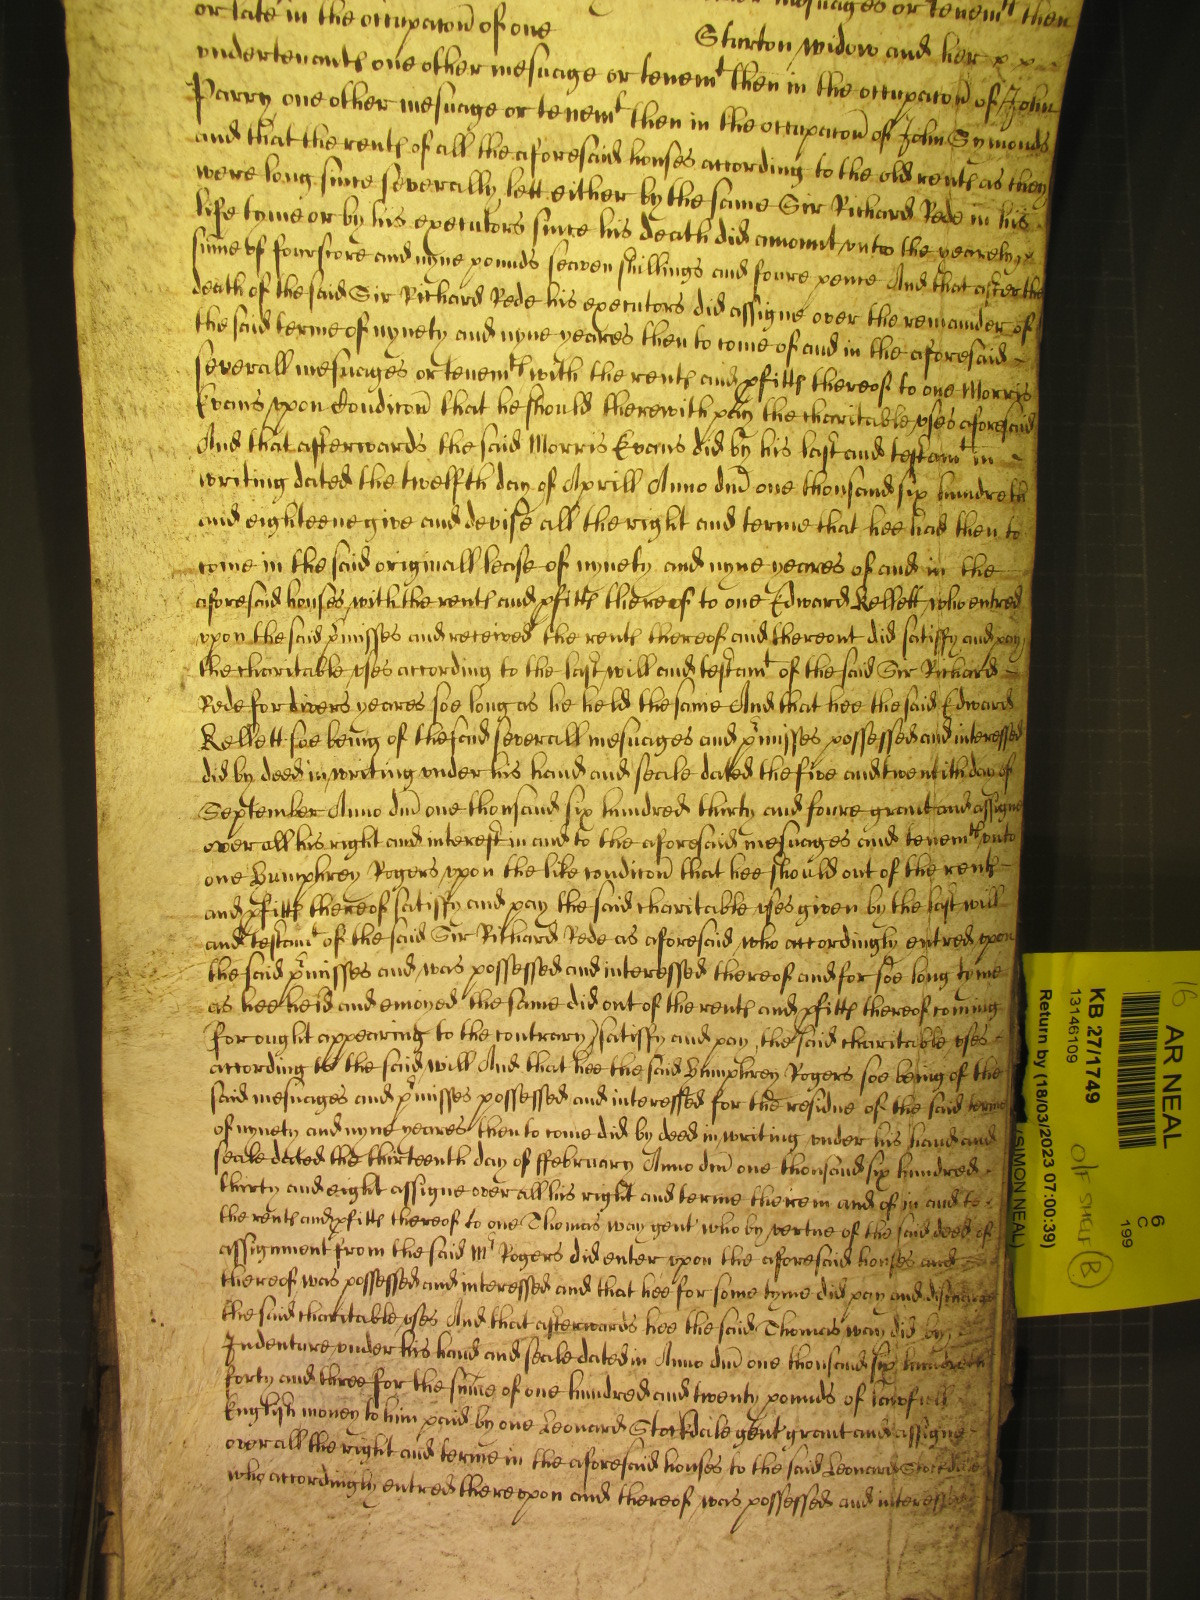 mesuages or tenemt then
or late in the occupacōn of one Sturton widow and her x x
undertenants one other mesuage or tenemt then in the occupacōn of John
Parry one other mesuage or tenemt then in the occupacōn of John Symonds
and that the rents of all the aforesaid houses according to the old rents as they
were long since severally lett either by the same Sir Richard Rede in his
life tyme or by his executors since his death did amount unto the yearely
sūme of fourscore and nyne pounds seaven shillings and foure pence And that after the
death of the said Sir Richard Rede his executors did assigne over the remainder of
the said terme of nynety and nyne yeares then to come of and in the aforesaid
severall mesuages or tenemts with the rents and pfitts thereof to one Morris
Evans upon Condicōn that he should therewith pay the charitable uses aforesaid
And that afterwards the said Morris Evans did by his last and testamt in
writing dated the twelfth day of Aprill Anno dm̄ one thousand six hundreth
and eighteene give and devise all the right and terme that hee had then to
come in the said originall lease of nynety and nyne yeares of and in the
aforesaid houses with the rents and pfitts thereof to one Edward Kellett who entred
upon the said p̄misses and received the rents thereof and thereout did satisfy and pay
the charitable uses according to the last will and testamt of the said Sir Richard
Rede for divers yeares soe long as he held the same And that hee the said Edward
Kellett soe being of the said severall mesuages and p̄misses possessed and interessed
did by deed in writing under his hand and seale dated the five and twentith day of
September Anno dm̄ one thousand six hundred thirty and foure grant and assigne
over all his right and interest in and to the aforesaid mesuages and tenemts unto
one Humphrey Rogers upon the like condicōn that hee should out of the rents
and pfitts thereof satisfy and pay the said charitable uses given by the last will
and testamt of the said Sir Richard Rede as aforesaid who accordingly entred upon
the said p̄misses and was possessed and interessed thereof and for soe long tyme
as hee held and enioyed the same did out of the rents and pfitts thereof coming
(for ought appearing to the contrary) satisfy and pay the said charitable uses
according to the said will And that hee the said Humphrey Rogers soe being of the
said mesuages and p̄misses possessed and interessed for the residue of the said terme
of nynety and nyne yeares then to come did by deed in writing under his hand and
seale dated the thirteenth day of ffebruary Anno dm̄ one thousand six hundred
thirty and eight assigne over all his right and terme therein and of in and to
the rents and pfitts thereof to one Thomas way gent who by vertue of the said deed of
assignment from the said Mr Rogers did enter upon the aforesaid houses and
thereof was possessed and interessed and that hee for some tyme did pay and discharge
the said charitable uses And that afterwards hee the said Thomas way did by
Indenture under his hand and seale dated in Anno dm̄ one thousand six hundreth
forty and three for the sūme of one hundred and twenty pounds of lawfull
English money to him paid by one Leonard Stockdale gent grant and assigne
over all the right and terme in the aforesaid houses to the said Leonard Stockdale
who accordingly entred thereupon and thereof was possessed and interessed
16
AR NEAL
6
C
199
KB 27/1749
13146109
O/F SHELF B
Return by (18/03/2023 07:00:39)
(SIMON NEAL)